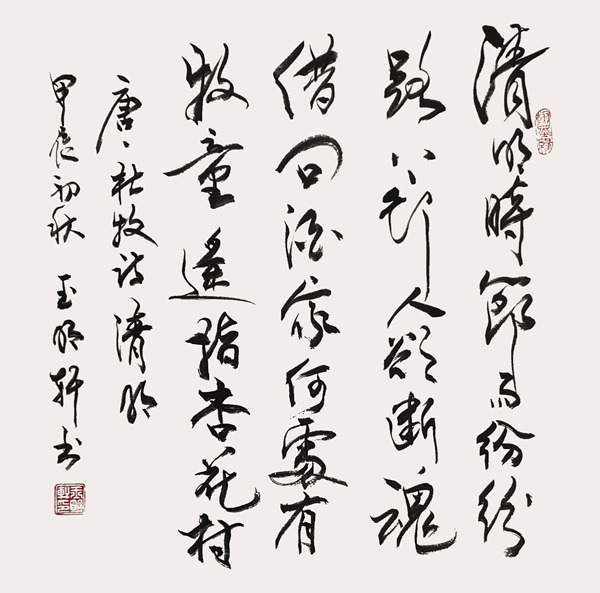 清明時節雨紛紛
路上行人欲斷魂
借问酒家何處有
牧童遥指杏花村
唐、杜牧诗清明
甲辰初秋 玉明軒书